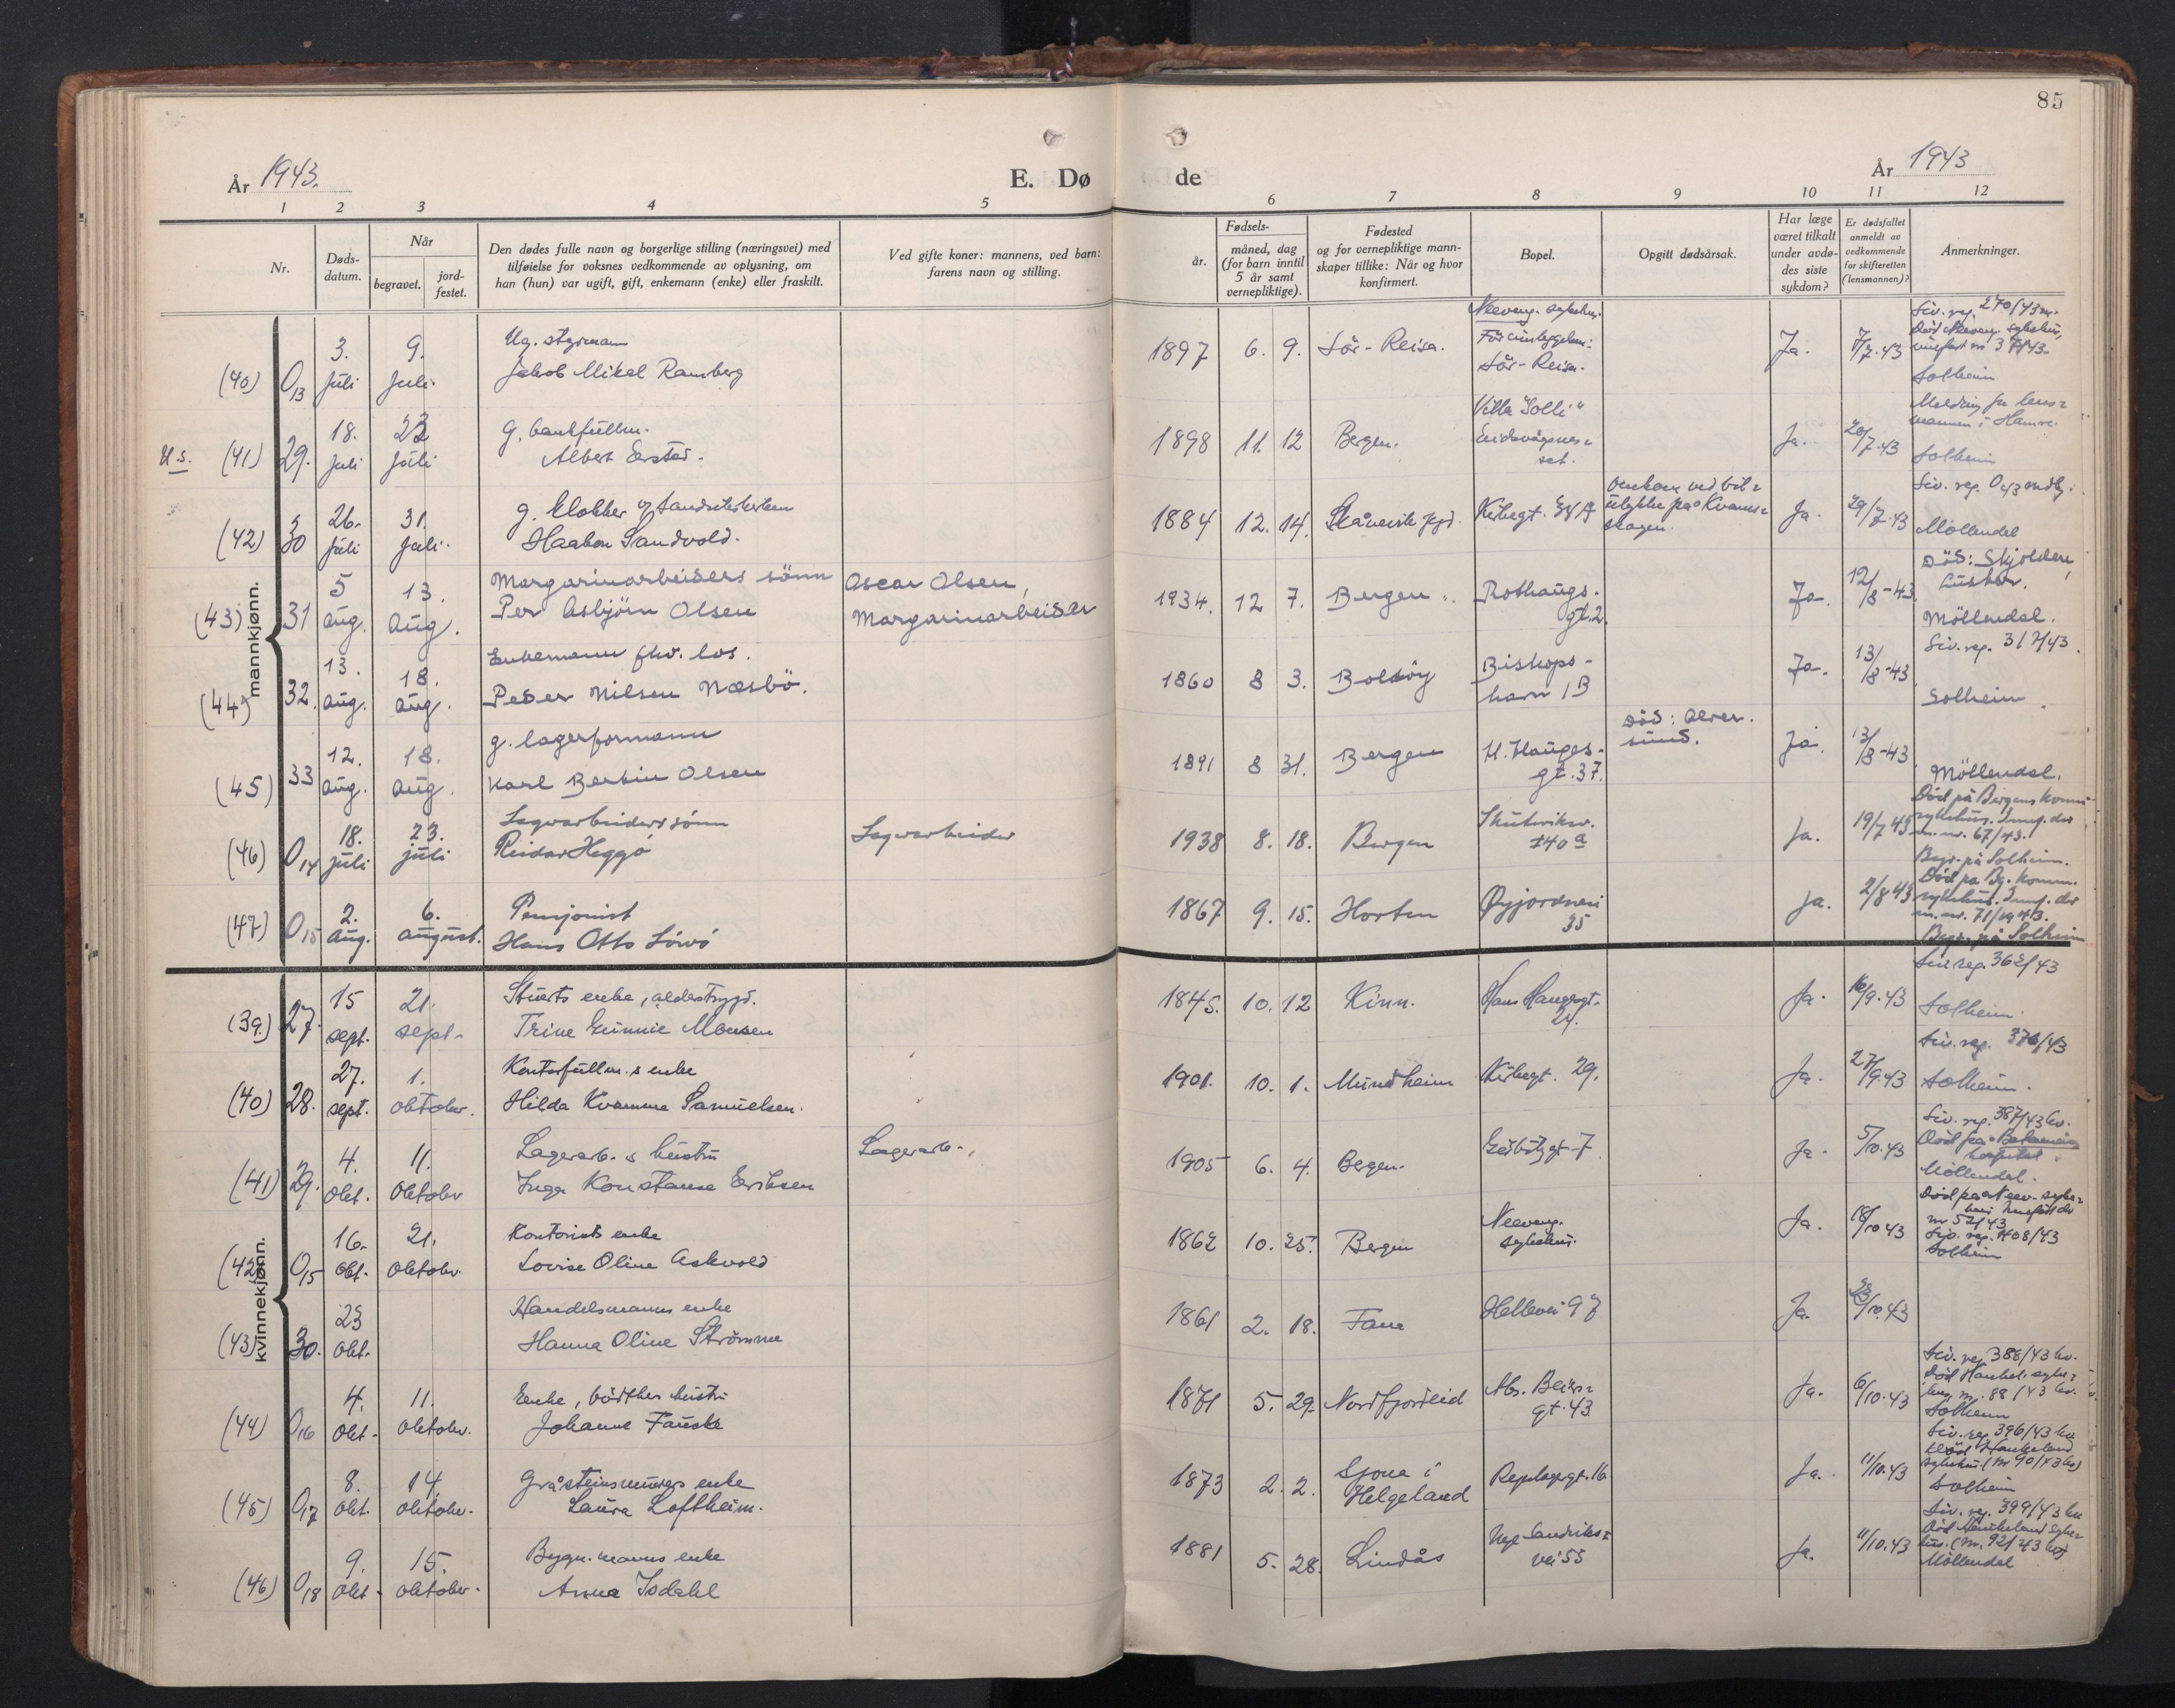 85
År 1943.
E. Dø
de
År 1943
1 2 3 4 5 6 7 8 9 10 11 12
Nr.
Døds-
datum.
Når
begravet.
jord-
festet.
Den dødes fulle navn og borgerlige stilling (næringsvei) med
tilføielse for voksnes vedkommende av oplysning, om
han (hun) var ugift, gift, enkemann (enke) eller fraskilt.
Ved gifte koner: mannens, ved barn:
farens navn og stilling.
Fødsels-
år.
måned, dag
(for barn inntil
5 år samt
vernepliktige).
Fødested
og for vernepliktige mann-
skaper tillike: Når og hvor
konfirmert.
Bopel.
Opgitt dødsårsak.
Har læge
været tilkalt
under avdø-
des siste
sykdom?
Er dødsfallet
anmeldt av
vedkommende
for skifteretten
(lensmannen)?
Anmerkninger.
mannkjønn.
(40) 0 13 3. juli 9. juli. Ug. styrmann
Jakob Mikal Ramberg
1897 6. 9. Sör-Reisa.
Neeveng. sykehus.
Sör-Reisa.
Ja. 7/7.43
Siv. reg. 270/43 m.
Solheim
U.s. (41) 29. 18. juli 23 juli g. bankfullm.
Albert Ersted.
1898 11. 12 Bergen.
Villa "Solli"
Eidsvågsnes-
set.
Ja. 20/7.43
Melding fra lens-
mannen i Hamre.
Solheim
(42) 30 26. juli 31. juli. g. klokker
Haakon Sandvold.
1884 12. 14. Skånevik
Kirkegt.
Omkom ved bil-
ulykke på Kvams-
skogen.
Ja. 29/7.43
Möllendal
(43) 31 5 aug. 13. aug. Margarinarbeiders sönn
Per Asbjörn Olsen
Oscar Olsen,
Margarinarbeider
1934. 12 7. Bergen.
Rothaugs-
gt. 2.
Ja. 12/8-43
Död: Skjolden,
Luster.
Möllendal.
(44) 32. 13. aug. 18. aug. Enkemann fhv. los.
Peder Nilsen Næsbö.
1860 8 3. Bolsöy
Biskops-
havn 1 B
Ja. 13/8-43
Siv. reg. 317/43.
Solheim.
(45) 33 12. aug. 18. aug. g. lagerformann
Karl Bertin Olsen
1891 8 31. Bergen
H. Hauges-
gt. 37.
Död: Alver-
sund.
Ja. 13/8-43
Möllendal.
(46) 0 14 18. juli 23. juli Lagerarbeiders sønn
Reidar Heggø
Lagerarbeider
1938 8. 18. Bergen
Skuteviksv.
140 a
Ja. 19/7 43
Død på Bergens komm.
sykehus. Innf. der
m. nr. 67/43.
Begr. på Solheim.
(47) 0 15 2. aug. 6. august. Pensjonist
Hans Otto
1867 9. 15. Horten
Øyjordsvei
35
Ja. 2/8 43
Død på Bg. komm.
sykehus. Innf. der
m. nr. 71/1943.
Begr. på Solheim
kvinnekjønn.
(39.) 27. 15 sept. 21. sept. Stuerts enke, alderstrygd.
Trine Monsen
1845. 10. 12 Kinn.
Hans Haugesgt.
24.
Ja. 16/9.43
Siv. reg. 362/43
Solheim.
(40) 28. 27. sept. 1. oktober. Kontorfullm.s enke
Hilda Kvamme Samuelsen.
1901. 10. 1. Mundheim
Kirkegt. 29.
Ja. 27/9.43
Siv. reg. 376/43
Solheim.
(41) 29. 4. okt. 11. oktober Lagerarb.s hustru
Inga Konstanse Eriksen
Lagerarb.,
1905 6. 4. Bergen.
Ja. 5/10.43
Siv. reg. 387/43 kv.
Död på Betanien
hospital.
Möllendal.
(42) 0 15 16. okt. 21. oktober. Kontorists enke
Lovise Oline Askvold
1862 10. 25. Bergen
Neeveng.
sykehus.
Ja. 18/10 43
Död på Neev. syke-
hus innfört der
nr 52/43
Siv. reg. 408/43
Solheim
(43) 30. 23 okt. Handelsmanns enke
Hanna Oline Strømme
1861 2. 18. Fana
Hellevei 97
Ja. 23/10.43
(44) 0 16 4. okt. 11. oktober. Enke, bödkers hustru
Johanne Fauske
1871 5. 29. Nordfjordeid
Abs. Beiers-
gt. 43
Ja. 6/10.43
Siv. reg. 388/43 kv.
Död Haukel. syke-
hus, nr. 88/43 kv.
Solheim
(45) 0 17 8. okt. 14. oktober. Gråsteinsmurers enke
Laura Loftheim.
1873 2. 2. Sjona i
Helgeland
Repslagergt. 16
Ja. 11/10.43
Siv. reg. 396/43 kv
Död Haukeland
sykehus. (nr 90/43 kv)
Solheim
(46) 0 18 9. okt. 15. oktober. Bygn.manns enke
Anna Isdahl
1881 5. 28. Lindås
Nye Sandviks-
vei 55
Ja. 11/10.43
Siv. reg. 399/43 kv
Död Haukeland syke-
hus. (nr. 92/43 kv)
Möllendal